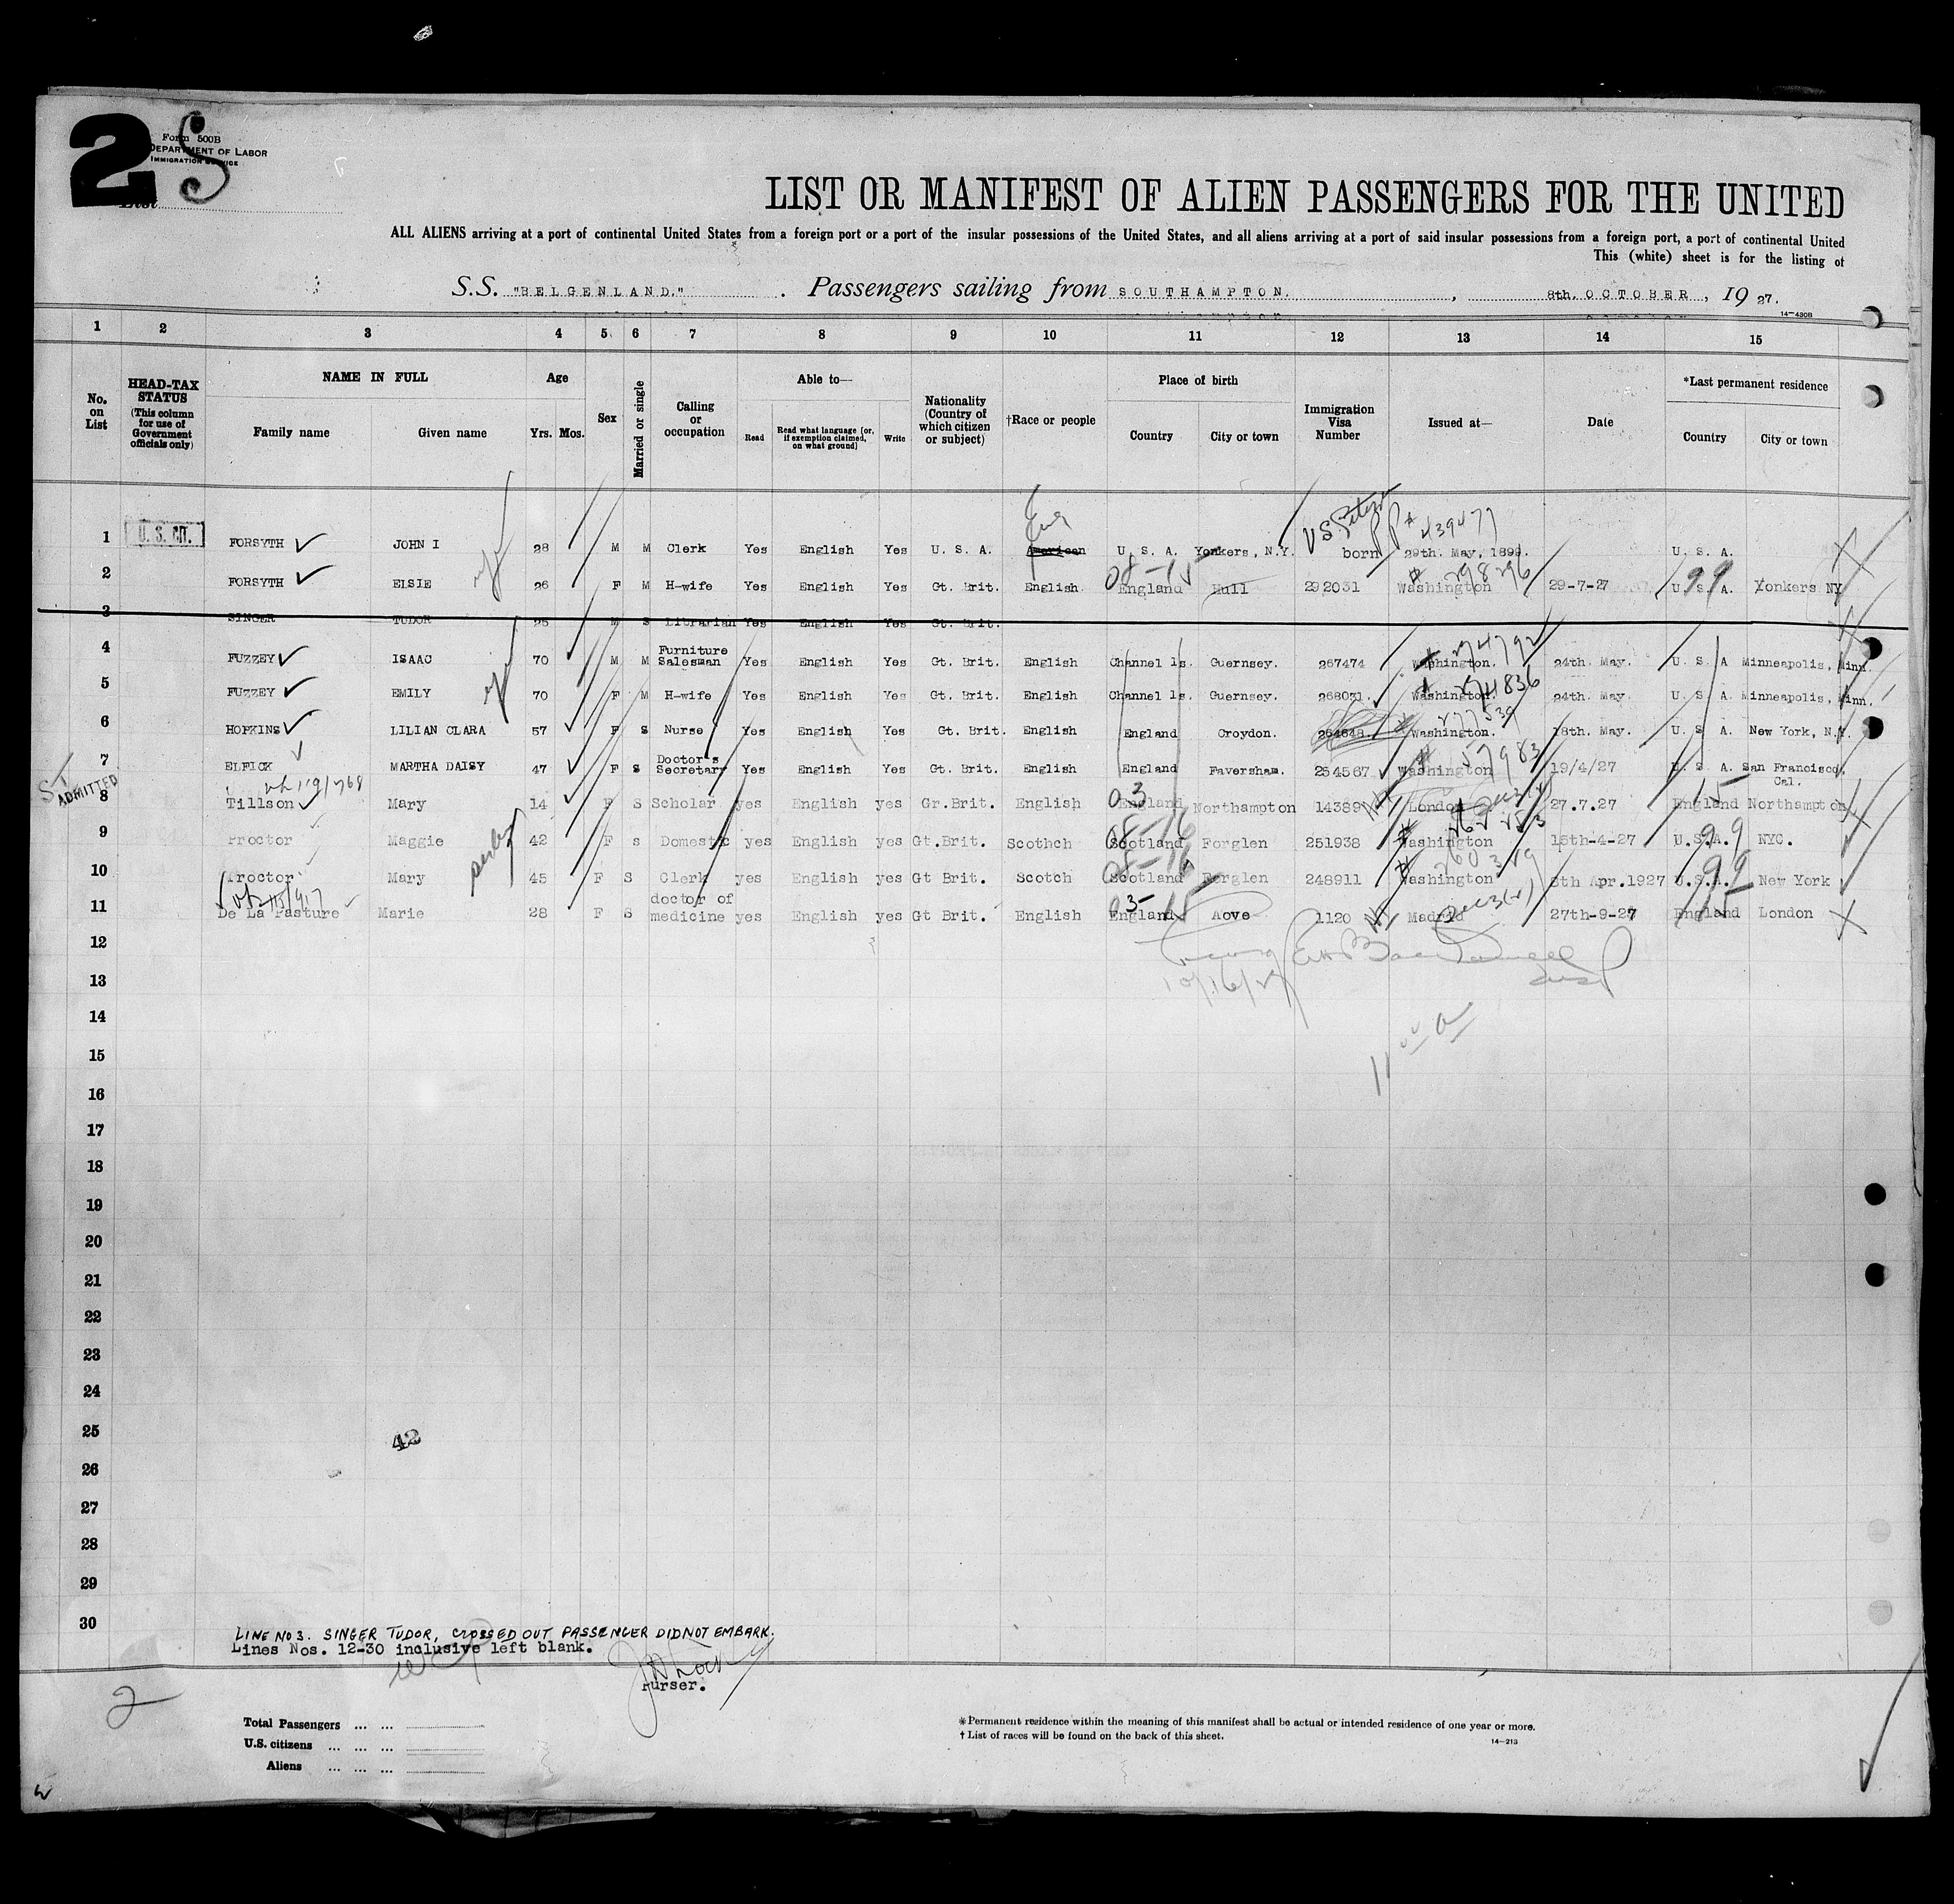 2 S
Form 500B
DEPARTMENT OF LABOR
IMMIGRATION SERVICE
List
LIST OR MANIFEST OF ALIEN PASSENGERS FOR THE UNITED
ALL ALIENS arriving at a port of continental United States from a foreign port or a port of the insular possessions of the United States, and all aliens arriving at a port of said insular possessions from a foreign port, a port of continental United
This (white) sheet is for the listing of
S.S. "BELGENLAND." Passengers sailing from SOUTHAMPTON. , 8th. OCTOBER , 19 27.
14-430B
1 2 3 4 5 6 7 8 9 10 11 12 13 14 15
No. on List
HEAD-TAX STATUS (This column for use of Government officials only)
NAME IN FULL
Family name Given name
Age
Yrs. Mos.
Sex
Married or single
Calling or occupation
Able to—
Read
Read what language [or, if exemption claimed, on what ground]
Write
Nationality (Country of which citizen or subject)
†Race or people
Place of birth
Country City or town
Immigration Visa Number
Issued at—
Date
*Last permanent residence
Country City or town
Eng US Citizen PP# 439477
1 U. S. CIT. FORSYTH JOHN I 28 M M Clerk Yes English Yes U. S. A. American U. S. A. Yonkers, N.Y. born 29th. May, 1899. U. S. A.
08-15 # 298296 99
2 FORSYTH ELSIE 26 F M H-wife Yes English Yes Gt. Brit. English England Hull 292031 Washington 29-7-27 U. S. A. Yonkers NY
3 SINGER TUDOR 25 M S Librarian Yes English Yes Gt. Brit.
274792
4 FUZZEY ISAAC 70 M M Furniture Salesman Yes English Yes Gt. Brit. English Channel Is. Guernsey. 267474 Washington. 24th. May. U. S. A Minneapolis, Minn.
274836
5 FUZZEY EMILY 70 F M H-wife Yes English Yes Gt. Brit. English Channel Is. Guernsey. 268031 Washington. 24th. May. U. S. A. Minneapolis, Minn.
277539
6 HOPKINS LILIAN CLARA 57 F S Nurse Yes English Yes Gt. Brit. English England Croydon. 264648. Washington. 18th. May. U. S A. New York, N.Y.
7 ELFICK MARTHA DAISY 47 F S Doctor's Secretary Yes English Yes Gt. Brit. English England Faversham. 254567 Washington 19/4/27 U. S. A. San Francisco, Cal.
ADMITTED 119/768 03 15
8 Tillson Mary 14 F S Scholar yes English yes Gr.Brit. English England Northampton 14389 London 27.7.27 England Northampton
08-16 # 262153 99
9 Proctor Maggie 42 F s Domestic yes English yes Gt.Brit. Scothch Scotland Forglen 251938 Washington 15th-4-27 U.S.A. NYC.
08-16 # 260319 99
10 Proctor Mary 45 F S Clerk yes English yes Gt Brit. Scotch Scotland Forglen 248911 Washington 8th Apr.1927 U.S.A. New York
03-15 15
11 De La Pasture Marie 28 F S doctor of medicine yes English yes Gt Brit. English England Aove 1120 Madrid 27th-9-27 England London
12
10/16/27
13
14
11 00 a
15
16
17
18
19
20
21
22
23
24
25
42
26
27
28
29
30
LINE NO 3. SINGER TUDOR, CROSSED OUT PASSENGER DID NOT EMBARK.
Lines Nos. 12-30 inclusive left blank.
Purser.
2
Total Passengers ... ...
U.S. citizens ... ... ...
Aliens ... ... ...
*Permanent residence within the meaning of this manifest shall be actual or intended residence of one year or more.
†List of races will be found on the back of this sheet.
14-213